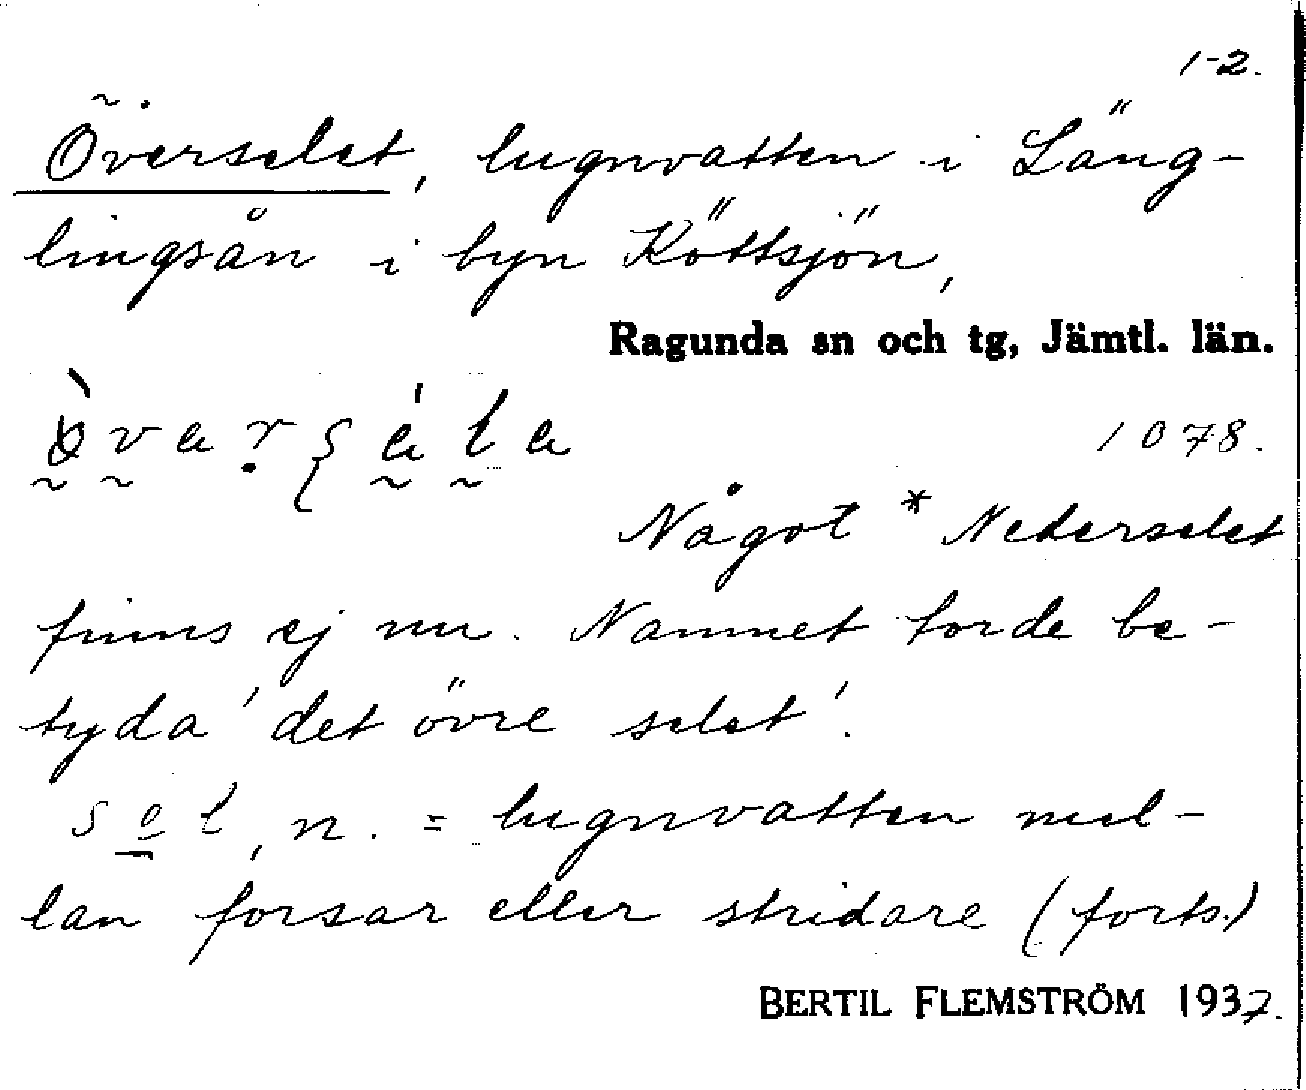 1-2.
Överselet, lugnvatten i Läng-
lingsån i byn Köttsjön,
Ragunda sn och tg, Jämtl. län.
1078.
Något * Nederselet
finns ej nu. Namnet torde be-
tyda 'det övre selet'.
sel, n. = lugnvatten mel-
lan forsar eller stridare (forts.)
BERTIL FLEMSTRÖM 1937.